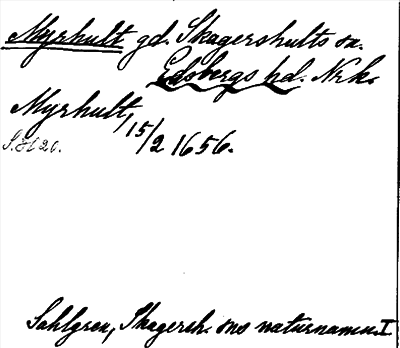 Myrhult gd. Skagershults sn.
Edsbergs hd. Nrk.
Myrhult, 15/2 1656.
Sahlgren, Skagersh. sns naturnamn I